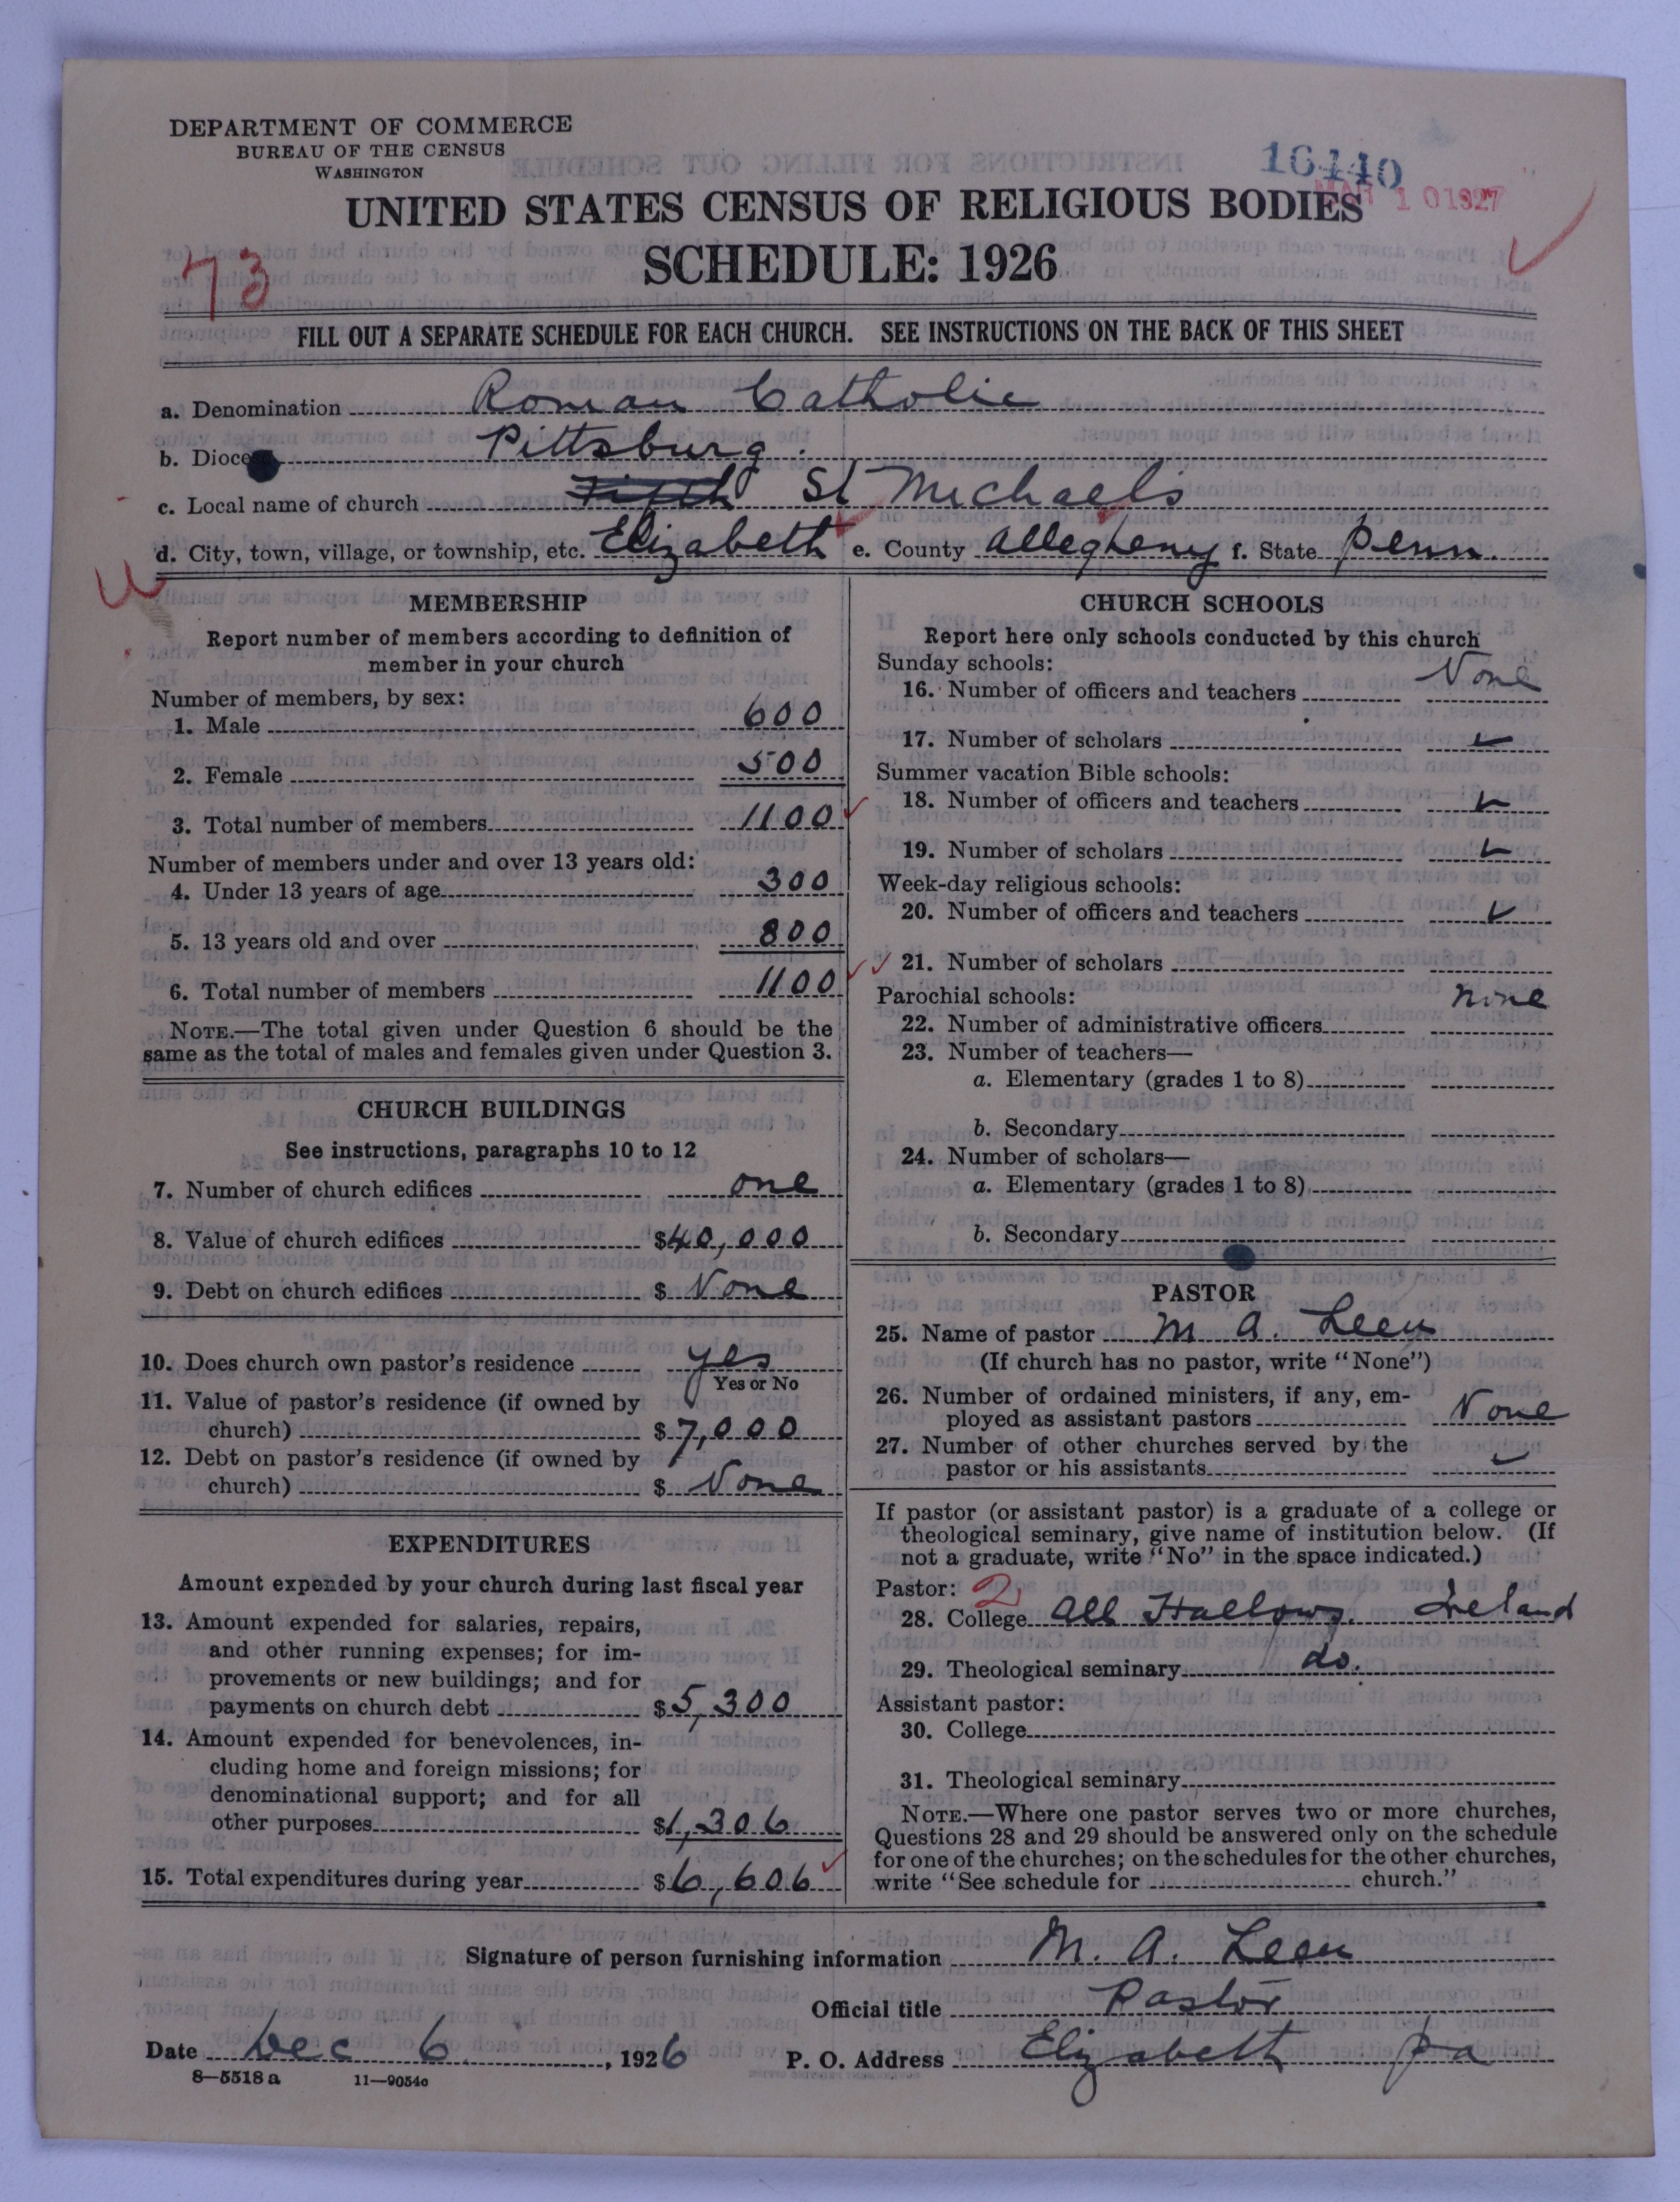 DEPARTMENT OF COMMERCE
BUREAU OF THE CENSUS
WASHINGTON
16440
MAR 10 1927
UNITED STATES CENSUS OF RELIGIOUS BODIES
SCHEDULE: 1926
73
FILL OUT A SEPARATE SCHEDULE FOR EACH CHURCH. SEE INSTRUCTIONS ON THE BACK OF THIS SHEET
a. Denomination Roman Catholic
b. Dioce Pittsburg.
c. Local name of church St Michaels
d. City, town, village, or township, etc. Elizabeth e. County Allegheny f. State Penn.
MEMBERSHIP
Report number of members according to definition of
member in your church
Number of members, by sex:
1. Male 600
2. Female 500
3. Total number of members 1100
Number of members under and over 13 years old:
4. Under 13 years of age 300
5. 13 years old and over 800
6. Total number of members 1100
NOTE.—The total given under Question 6 should be the
same as the total of males and females given under Question 3.
CHURCH BUILDINGS
See instructions, paragraphs 10 to 12
7. Number of church edifices one
8. Value of church edifices $40,000
9. Debt on church edifices $ None
10. Does church own pastor's residence yes
Yes or No
11. Value of pastor's residence (if owned by
church) $7,000
12. Debt on pastor's residence (if owned by
church) $ None
EXPENDITURES
Amount expended by your church during last fiscal year
13. Amount expended for salaries, repairs,
and other running expenses; for im-
provements or new buildings; and for
payments on church debt $5,300
14. Amount expended for benevolences, in-
cluding home and foreign missions; for
denominational support; and for all
other purposes $1,306
15. Total expenditures during year $6,606
CHURCH SCHOOLS
Report here only schools conducted by this church
Sunday schools:
16. Number of officers and teachers None
17. Number of scholars
Summer vacation Bible schools:
18. Number of officers and teachers
19. Number of scholars
Week-day religious schools:
20. Number of officers and teachers
21. Number of scholars
Parochial schools: none
22. Number of administrative officers
23. Number of teachers—
a. Elementary (grades 1 to 8)
b. Secondary
24. Number of scholars—
a. Elementary (grades 1 to 8)
b. Secondary
PASTOR
25. Name of pastor M A. Leen
(If church has no pastor, write "None")
26. Number of ordained ministers, if any, em-
ployed as assistant pastors None
27. Number of other churches served by the
pastor or his assistants
If pastor (or assistant pastor) is a graduate of a college or
theological seminary, give name of institution below. (If
not a graduate, write "No" in the space indicated.)
Pastor: 2
28. College All Hallows. Ireland
29. Theological seminary do.
Assistant pastor:
30. College
31. Theological seminary
NOTE.—Where one pastor serves two or more churches,
Questions 28 and 29 should be answered only on the schedule
for one of the churches; on the schedules for the other churches,
write "See schedule for church."
Signature of person furnishing information M. A. Leen
Official title Pastor
Date Dec 6, 1926 P. O. Address Elizabeth Pa
8—5518 a 11—9054c